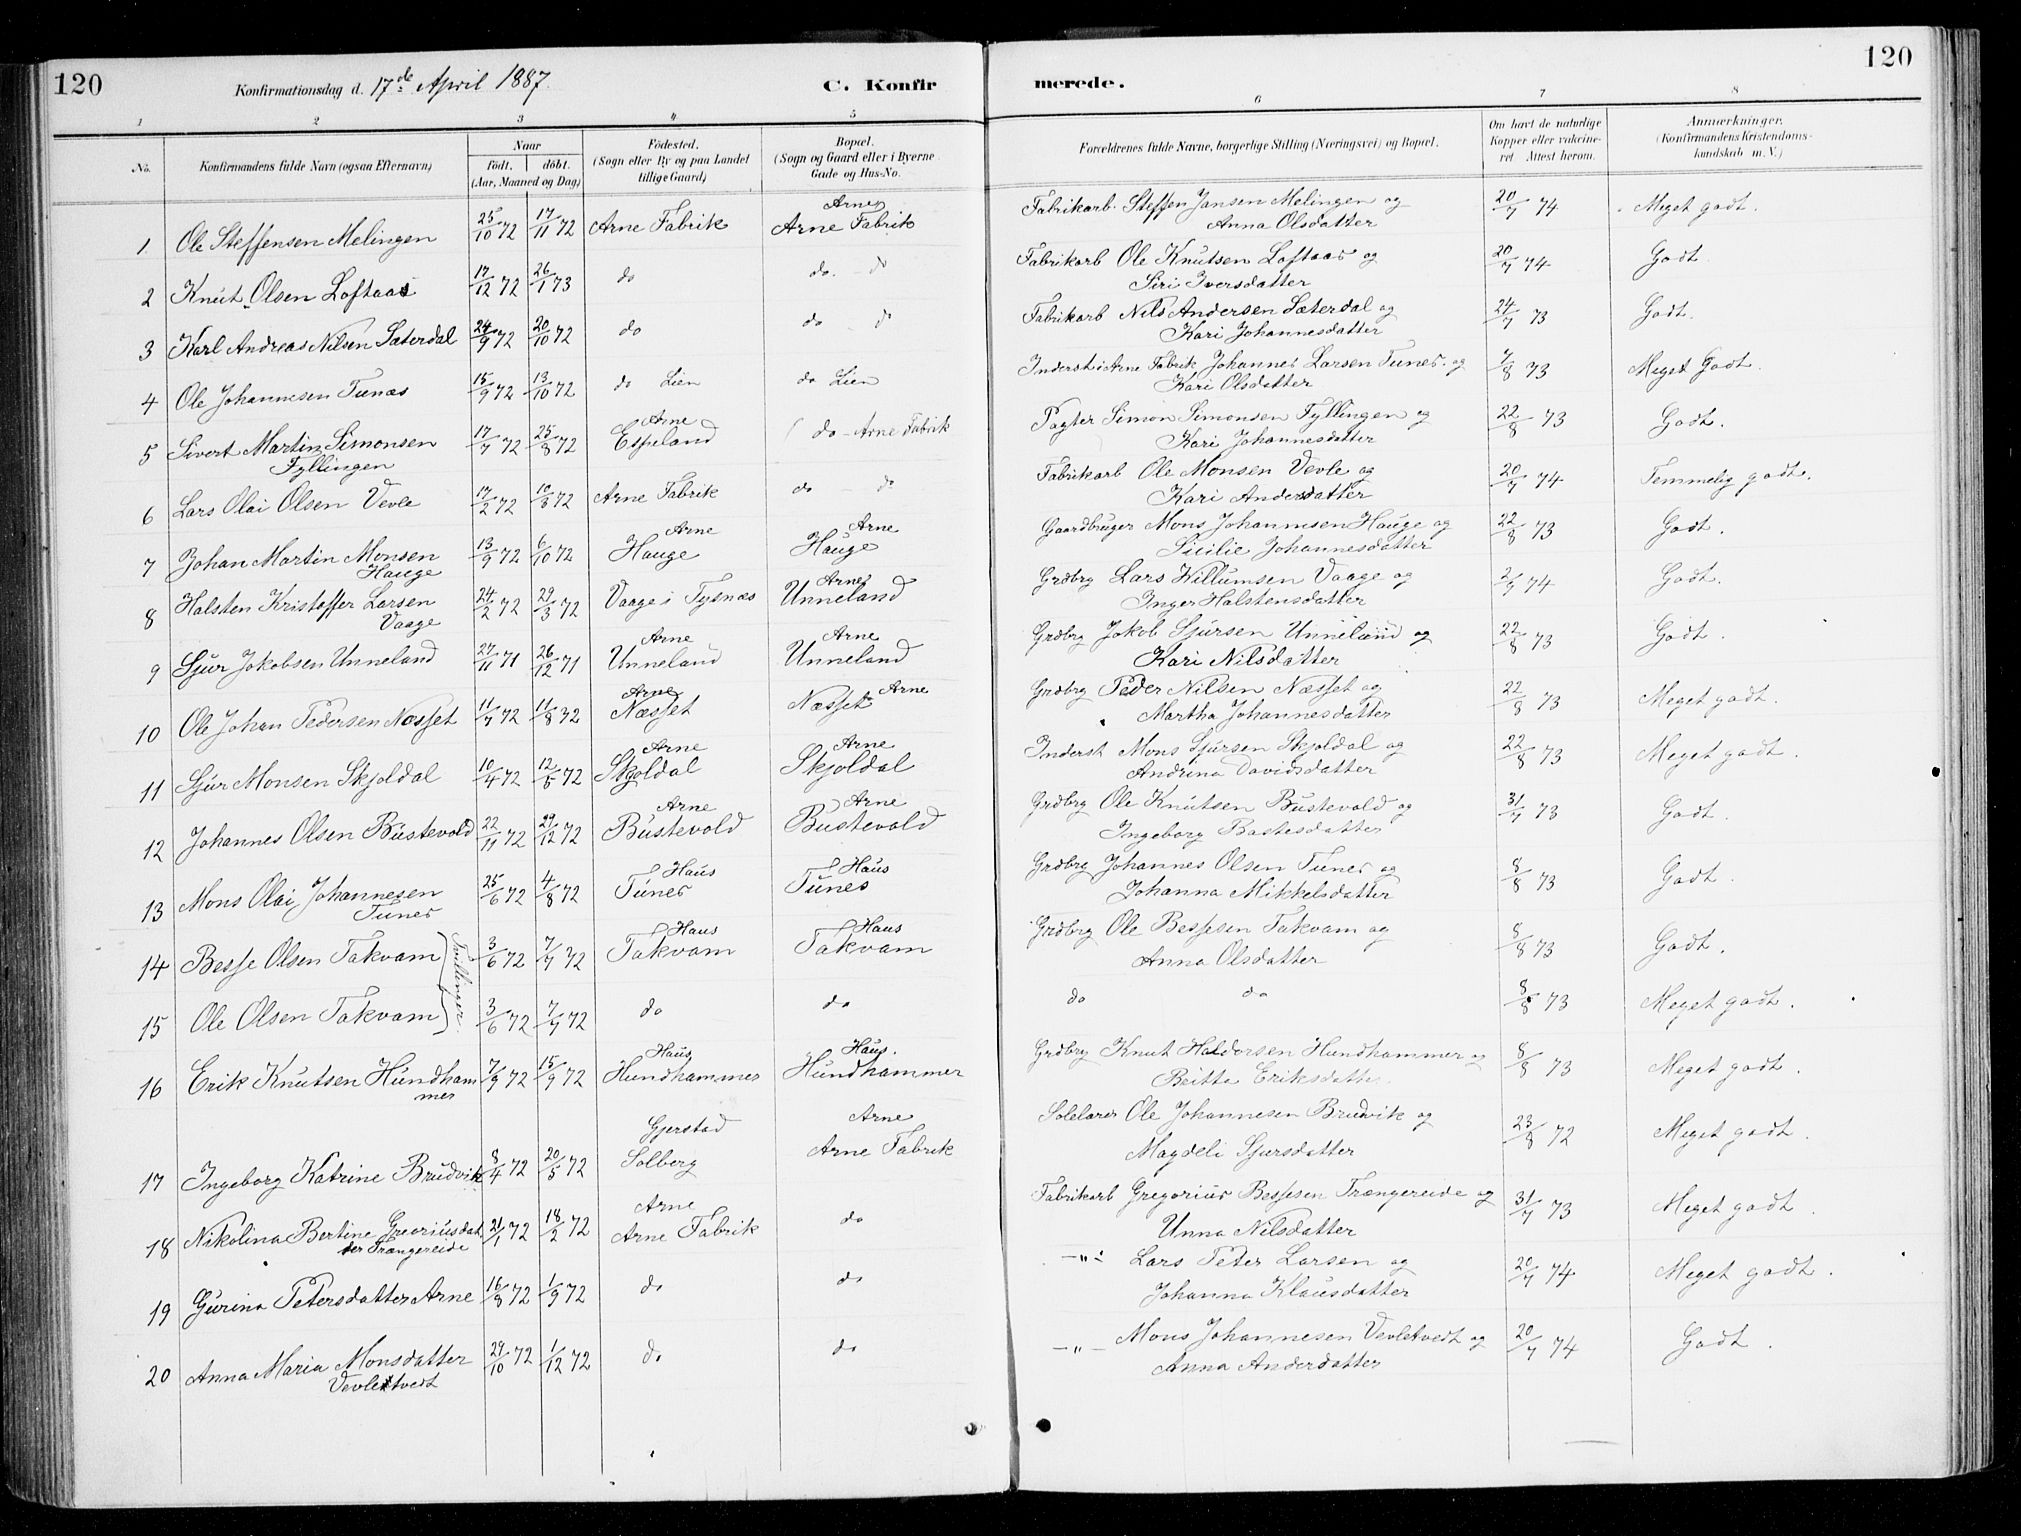 120
Konfirmationsdag d. 17de April 1887.
C. Konfir
merede.
120
1 2 3 4 5 6 7 8
No.
Konfirmandens fulde Navn (ogsaa Efternavn)
Naar
Födt. döbt.
(Aar, Maaned og Dag)
Födested.
(Sogn eller By og paa Landet
tillige Gaard)
Bopæl.
(Sogn og Gaard eller i Byerne
Gade og Hus-No.
Forældrenes fulde Navne, borgerlige Stilling (Næringsvei) og Bopæl.
Om havt de naturlige
Kopper eller vakcine-
ret Attest herom.
Anmærkninger.
(Konfirmandens Kristendoms-
kundskab m. V.)
1 Ole Steffensen Melingen 25/10 72 17/11 72 Arne Fabrik Arne Arne Fabrik Fabrikarb. Steffen Jansen Melingen og 20/7 74 Meget godt.
Anna Olsdatter
2 Knut Olsen Loftaas 17/12 72 26/1 73 do do - d Fabrikarb Ole Knutsen Loftaas og 20/7 74 Godt
Siri Iversdatter
3 Karl Andreas Nilsen Sæterdal 24/9 72 20/10 72 do do - d Fabrikarb Nils Andersen Sæterdal og 24/7 73 Godt.
Kari Johannesdatter
4 Ole Johannesen Tunæs 15/9 72 13/10 72 do Lien do Lien Inderst i Arne Fabrik Johannes Larsen Tunes og 7/8 73 Meget Godt.
Kari Olsdatter
5 Sivert Martin Simonsen 17/7 72 25/8 72 Arne Espeland do - Arne Fabrik Pagter Simon Simonsen Fyllingen og 22/8 73 Godt.
Fyllingen Kari Johannesdatter
6 Lars Olai Olsen Vevle 17/2 72 10/3 72 Arne Fabrik do - do Fabrikarb Ole Monsen Vevle og 20/7 74 Temmelig godt.
Kari Andersdatter
7 Johan Martin Monsen 13/9 72 6/10 72 Arne Hauge Arne Hauge Gaardbruger Mons Johannesen Hauge og 22/8 73 Godt.
Hauge Sicilie Johannesdatter
8 Halsten Kristoffer Larsen 24/2 72 29/3 72 Vaage i Tysnæs Arne Unneland Grdbrg Lars Willumsen Vaage og 2/7 74 Godt.
Vaage Inger Halstensdatter
9 Sjur Jakobsen Unneland 27/11 71 26/12 71 Arne Unneland Arne Unneland Grdbrg Jokob Sjursen Unneland og 22/8 73 Godt.
Kari Nilsdatter
10 Ole Johan Pedersen Næsset 11/7 72 11/8 32 Arne Næsset Næsset Arne Grdbrg Peder Nilsen Næsset og 22/8 73 Meget godt.
Martha Johannesdatter
11 Sjur Monsen Skjoldal 10/4 72 12/5 72 Arne Skjoldal Arne Skjoldal Inderst Mons Sjursen Skjoldal og 22/8 73 Meget godt.
Andrina Davidsdatter
12 Johannes Olsen Bustevold 22/11 72 29/12 72 Arne Bustevold Arne Bustevold Grdbrg Ole Knutsen Bustevold og 31/7 73 Godt.
Ingeborg Bastesdatter
13 Mons Olai Johannesen 25/6 72 4/8 72 Haus Tunes Haus Tunes Grdbrg Johannes Olsen Tunes og 8/8 73 Godt.
Tunes Johanna Mikkelsdatter
14 Besse Olsen Takvam 3/6 72 7/7 72 Haus Takvam Haus Takvam Grdbrg Ole Bessesen Takvam og 8/8 73 Godt.
Tvillinger. Anna Olsdatter
15 Ole Olsen Takvam 3/6 72 7/7 72 do do do do 8/8 73 Meget godt.
16 Erik Knutsen Hundham 7/9 72 15/9 72 Haus Hundhammer Haus. Hundhammer Grdbrg Knut Haldorsen Hundhammer og 8/8 73 Meget godt.
mer Beitte Eriksdatter
17 Ingeborg Katrine Brudvik 8/4 72 20/5 72 Gjerstad Solberg Arne Arne Fabrik Solelarer Ole Johannesen Brudvik og 23/8 72 Meget godt.
Magdeli Sjursdatter
18 Nikolina Bertine Greoriusdat 21/1 72 18/2 72 Arne Arne Fabrik do Fabrikarb Gregorius Bessesen Trængereide og 31/7 73 Meget godt.
ter Trængereide Unna Nilsdatter
19 Gurina Petersdatter Arne 16/8 72 1/9 72 do do -"- Lars Peter Larsen og 20/7 74 Meget godt.
Johanna Klausdatter
20 Anna Maria Monsdatter 29/10 72 1/12 72 do do -"- Mons Johannesen Vevletvedt og 20/7 74 Godt.
Vevletvedt Anna Andersdatter